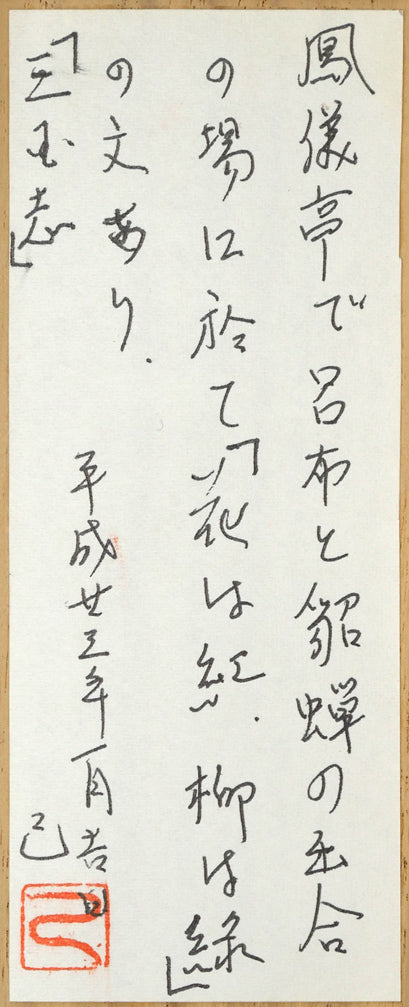 鳳儀亭で呂布と貂蟬の出合
の場に於て「花は紅．柳は緑」
の文あり．
「三国志」
平成廿三年一月吉日
己